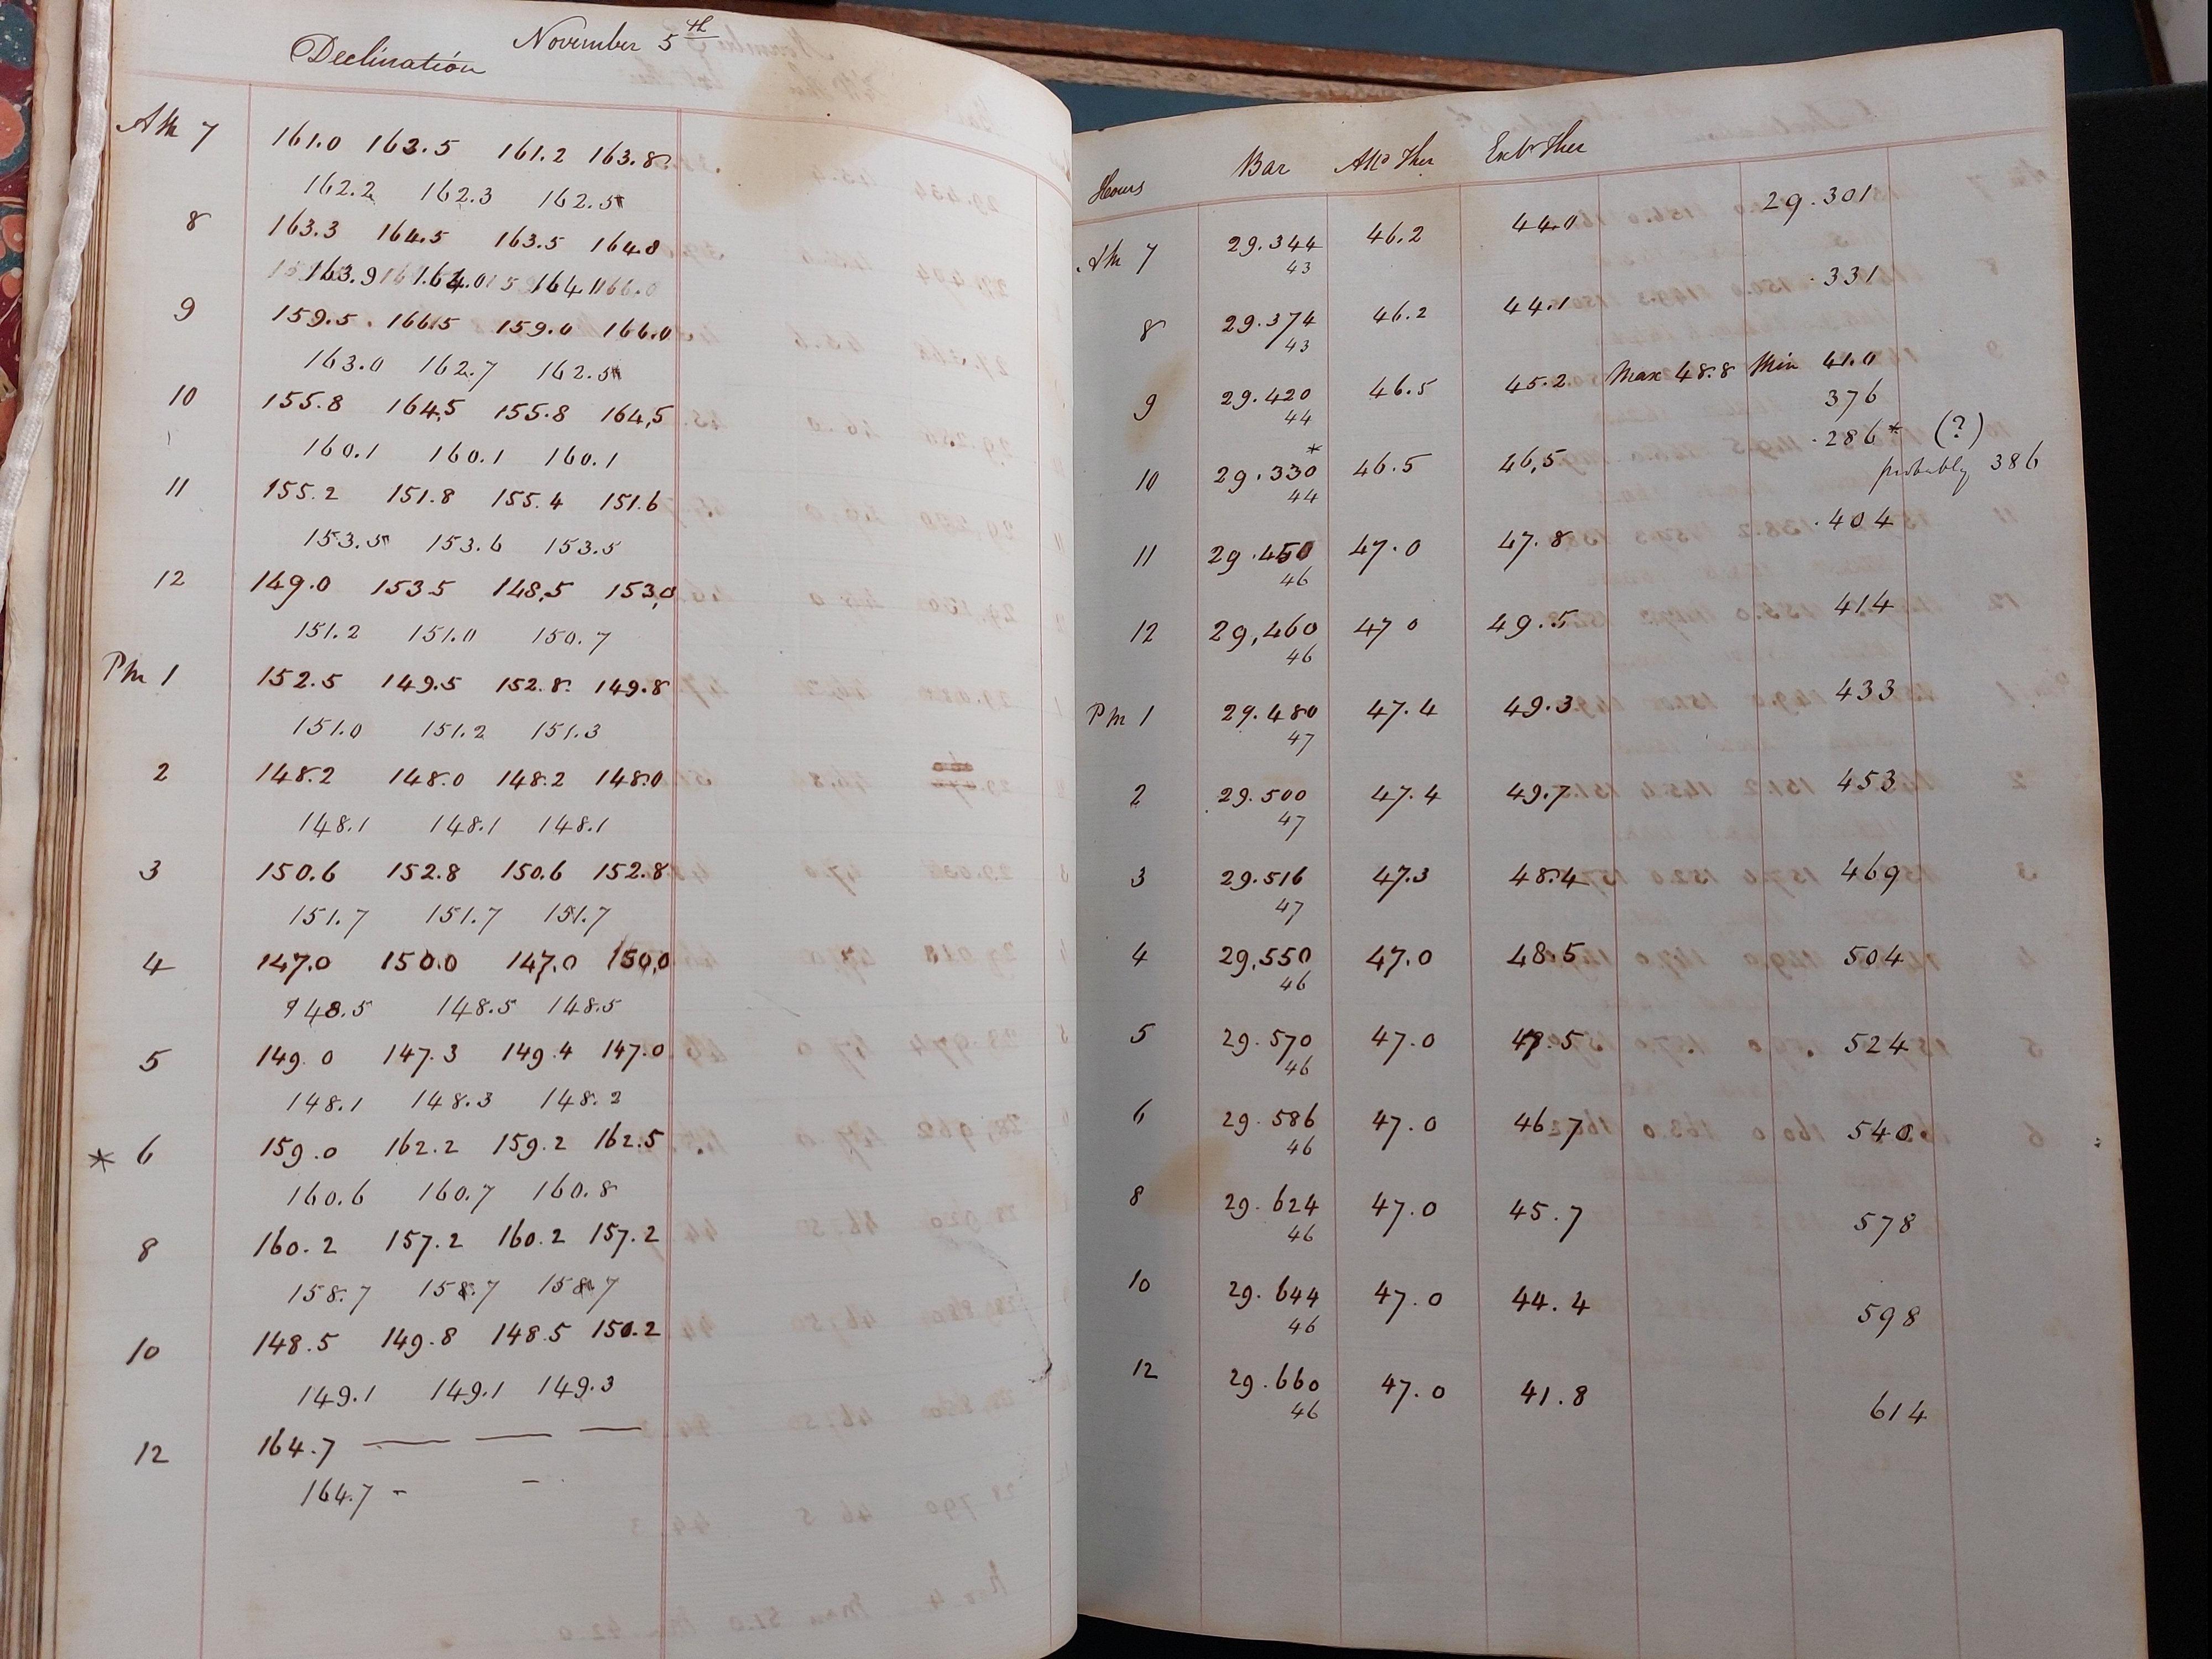 Declination November 5th
AM 7 161.0 163.5 161.2 163.8
162.2 162.3 162.5
8 163.3 164.5 163.5 164.8
163.9 164.0 164.1
9 159.5 166.5 159.0 166.0
163.0 162.7 162.5
10 155.8 164.5 155.8 164.5
160.1 160.1 160.1
11 155.2 151.8 155.4 151.6
153.5 153.6 153.5
12 149.0 153.5 148.5 153.0
151.2 151.0 150.7
PM 1 152.5 149.5 152.8 149.8
151.0 151.2 151.3
2 148.2 148.0 148.2 148.0
148.1 148.1 148.1
3 150.6 152.8 150.6 152.8
151.7 151.7 151.7
4 147.0 150.0 147.0 150.0
148.5 148.5 148.5
5 149.0 147.3 149.4 147.0
148.1 148.3 148.2
* 6 159.0 162.2 159.2 162.5
160.6 160.7 160.8
8 160.2 157.2 160.2 157.2
158.7 158.7 158.7
10 148.5 149.8 148.5 150.2
149.1 149.1 149.3
12 164.7 — — —
164.7 - -
Hours Bar Attd Ther Extr Ther
29.301
AM 7 29.344 46.2 44.0
43
.331
8 29.374 46.2 44.1
43
9 29.420 46.5 45.2 Max 48.8 Min 41.0
44 376
* .286* (?)
10 29.330 46.5 46.5 probably 386
44
.404
11 29.450 47.0 47.8
46
414
12 29.460 47 0 49.5
46
433
PM 1 29.480 47.4 49.3
47
2 29.500 47.4 49.7 453
47
3 29.516 47.3 48.4 469
47
4 29.550 47.0 48.5 504
46
5 29.570 47.0 47.5 524
46
6 29.586 47.0 46.7 540
46
8 29.624 47.0 45.7 578
46
10 29.644 47.0 44.4 598
46
12 29.660 47.0 41.8 614
46